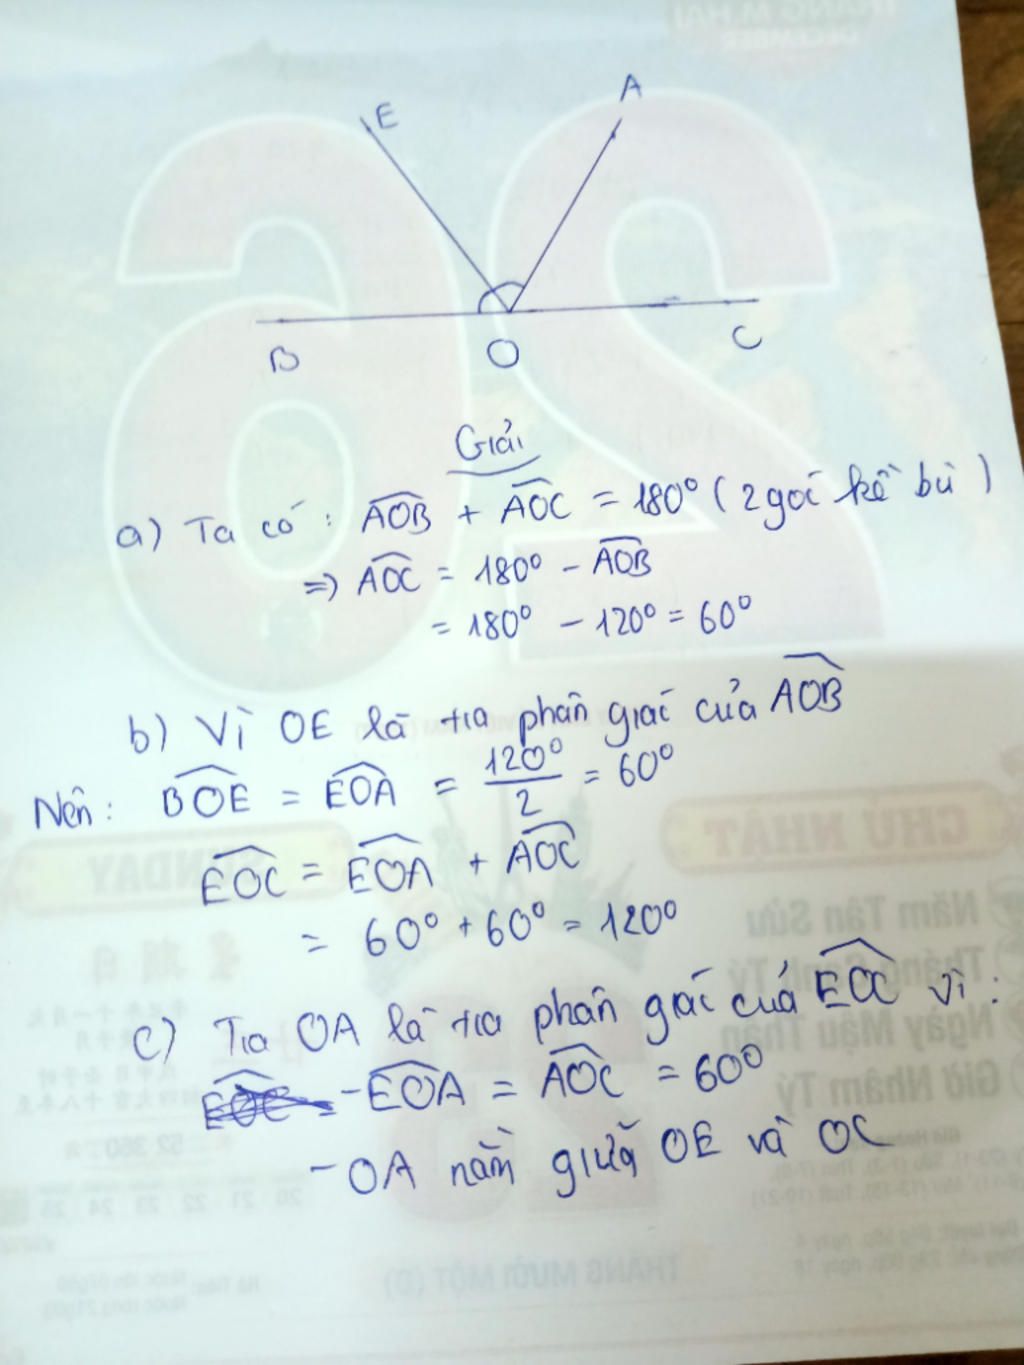 E
A
B
O
C
Giải
a) Ta có: AOB + AOC = 180° (2 goć kề bù)
=> AOC = 180° - AOB
= 180° - 120° = 60°
b) Vì OE là tia phân giác của AOB
Nên: BOE = EOA = 120°/2 = 60°
EOC = EOA + AOC
= 60° + 60° = 120°
c) Tia OA là tia phân giác của EOC vì:
- EOA = AOC = 60°
- OA nằm giữa OE và OC